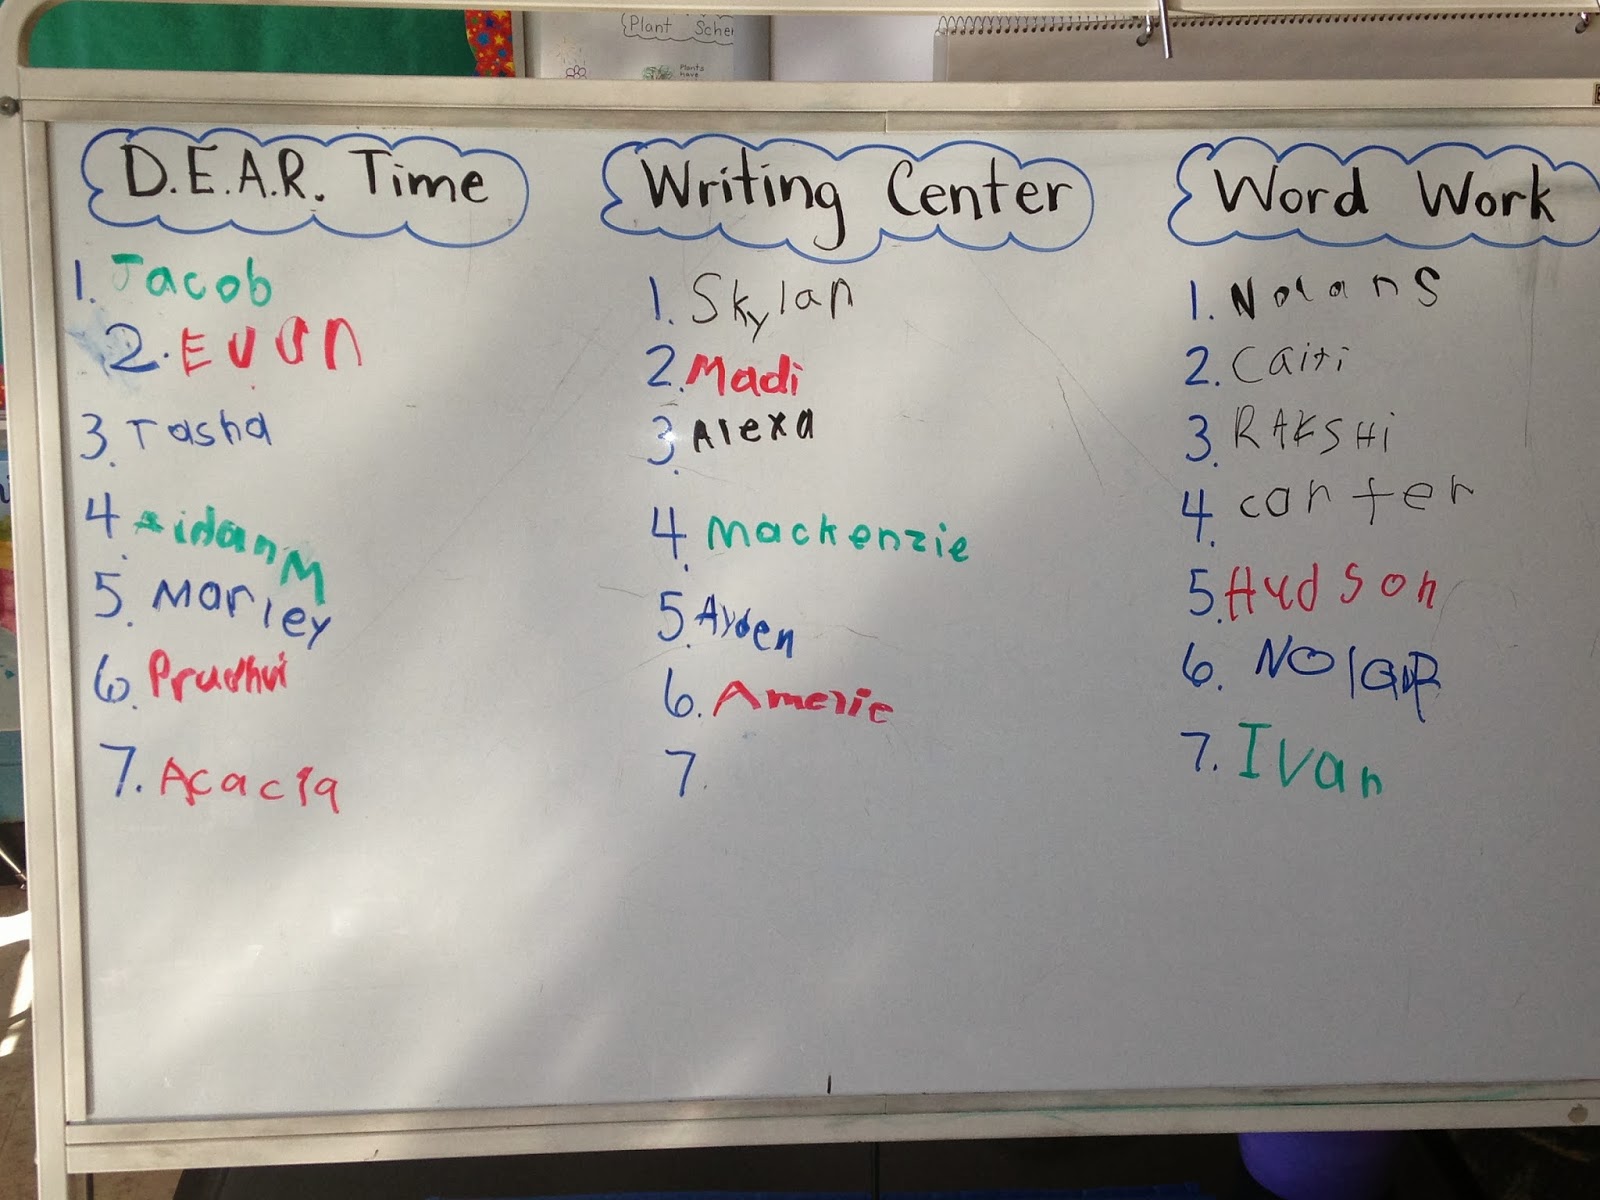 Plant Sche
Plants
have
D.E.A.R. Time
1. Jacob
2. Evan
3. Tasha
4. aidan M
5. Marley
6. Prudhvi
7. Acacia
Writing Center
1. Skylan
2. Madi
3. Alexa
4. Mackenzie
5. Ayden
6. Amelie
7.
Word Work
1. Nolan S
2. Caiti
3. RAKSHi
4. carter
5. Hudson
6. NOlan R
7. Ivan